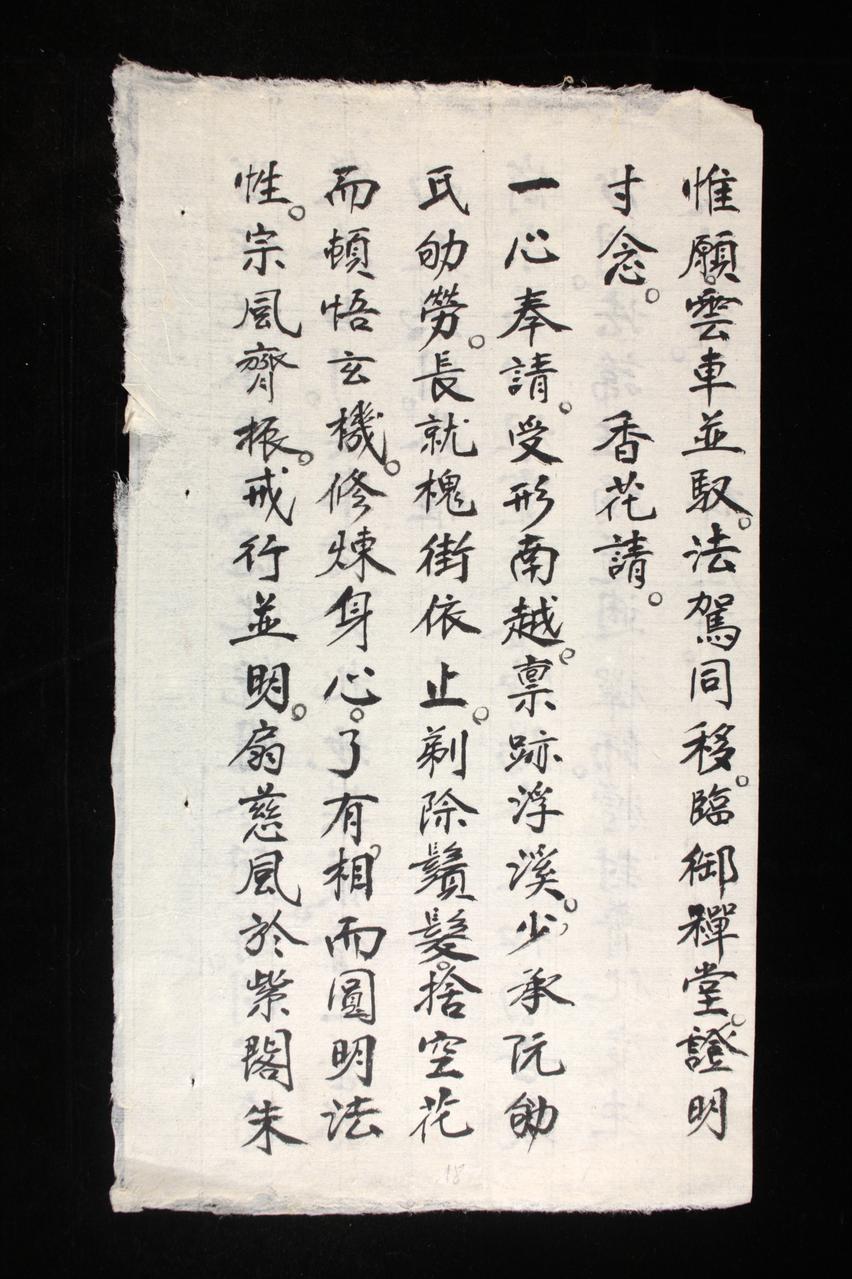 惟願。雲車並馭。法駕同移。臨御禪堂。證明
寸念。 香花請。
一心奉請。受形南越。禀跡浮溪。少承阮劬
氏劬勞。長就槐街依止。剃除鬚髮。捨空花
而頓悟玄機。修煉身心。了有相。而圓明法
性。宗風齊振。戒行並明。扇慈風於紫閣朱
18